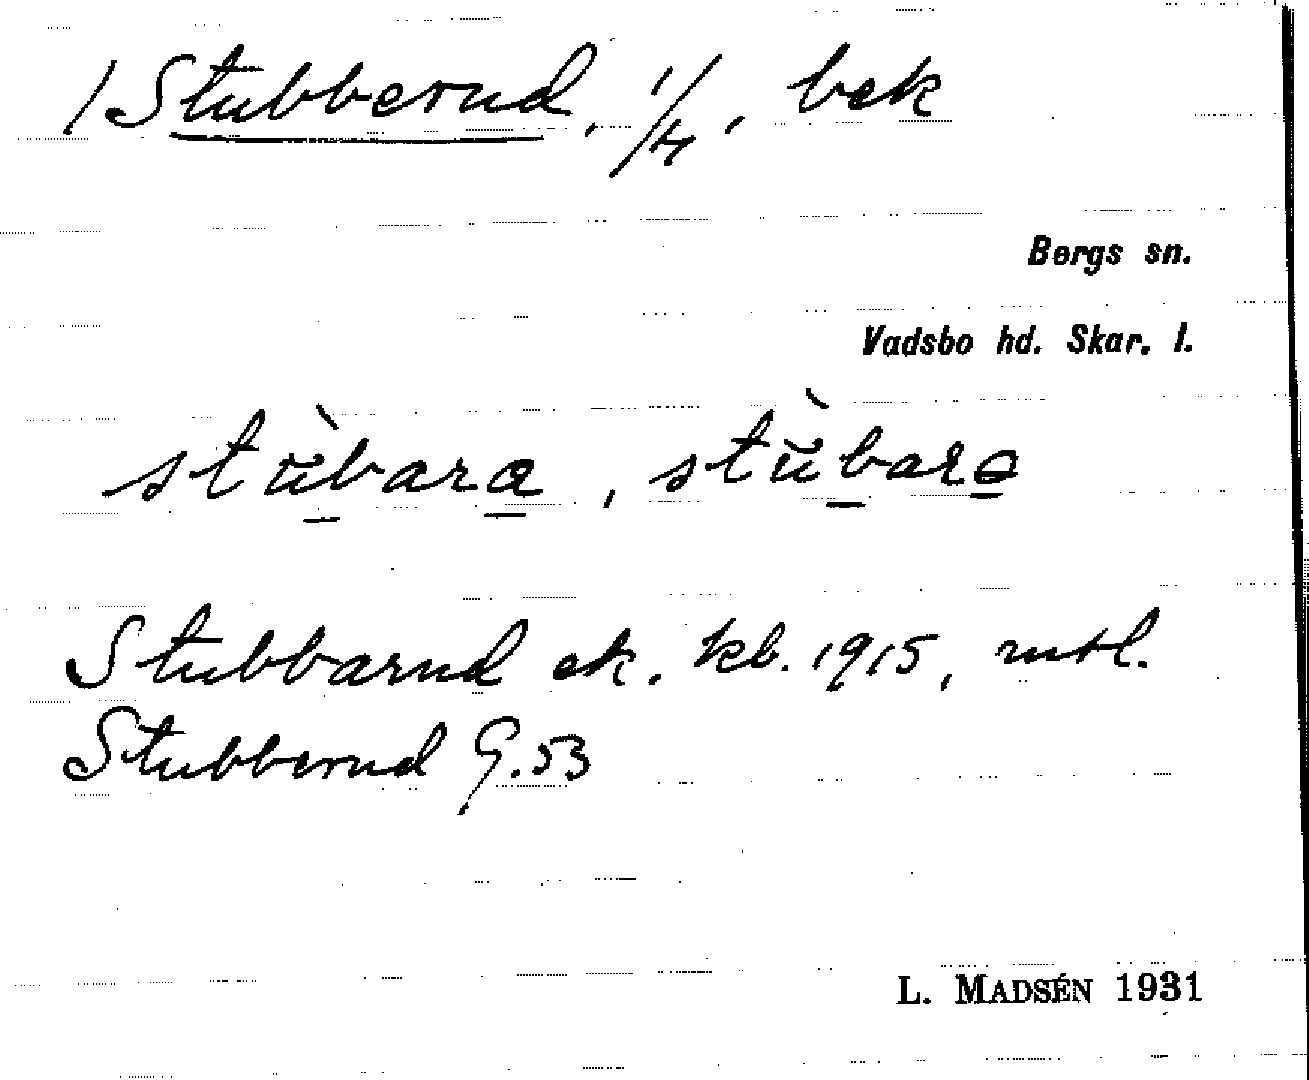 / Stubberud, 1/4, bek
Bergs sn.
Vadsbo hd. Skar. l.
stùbara, stùbarə
Stubbarud ek. kb. 1915, mtl.
Stubberud G. 53
L. MADSÉN 1931